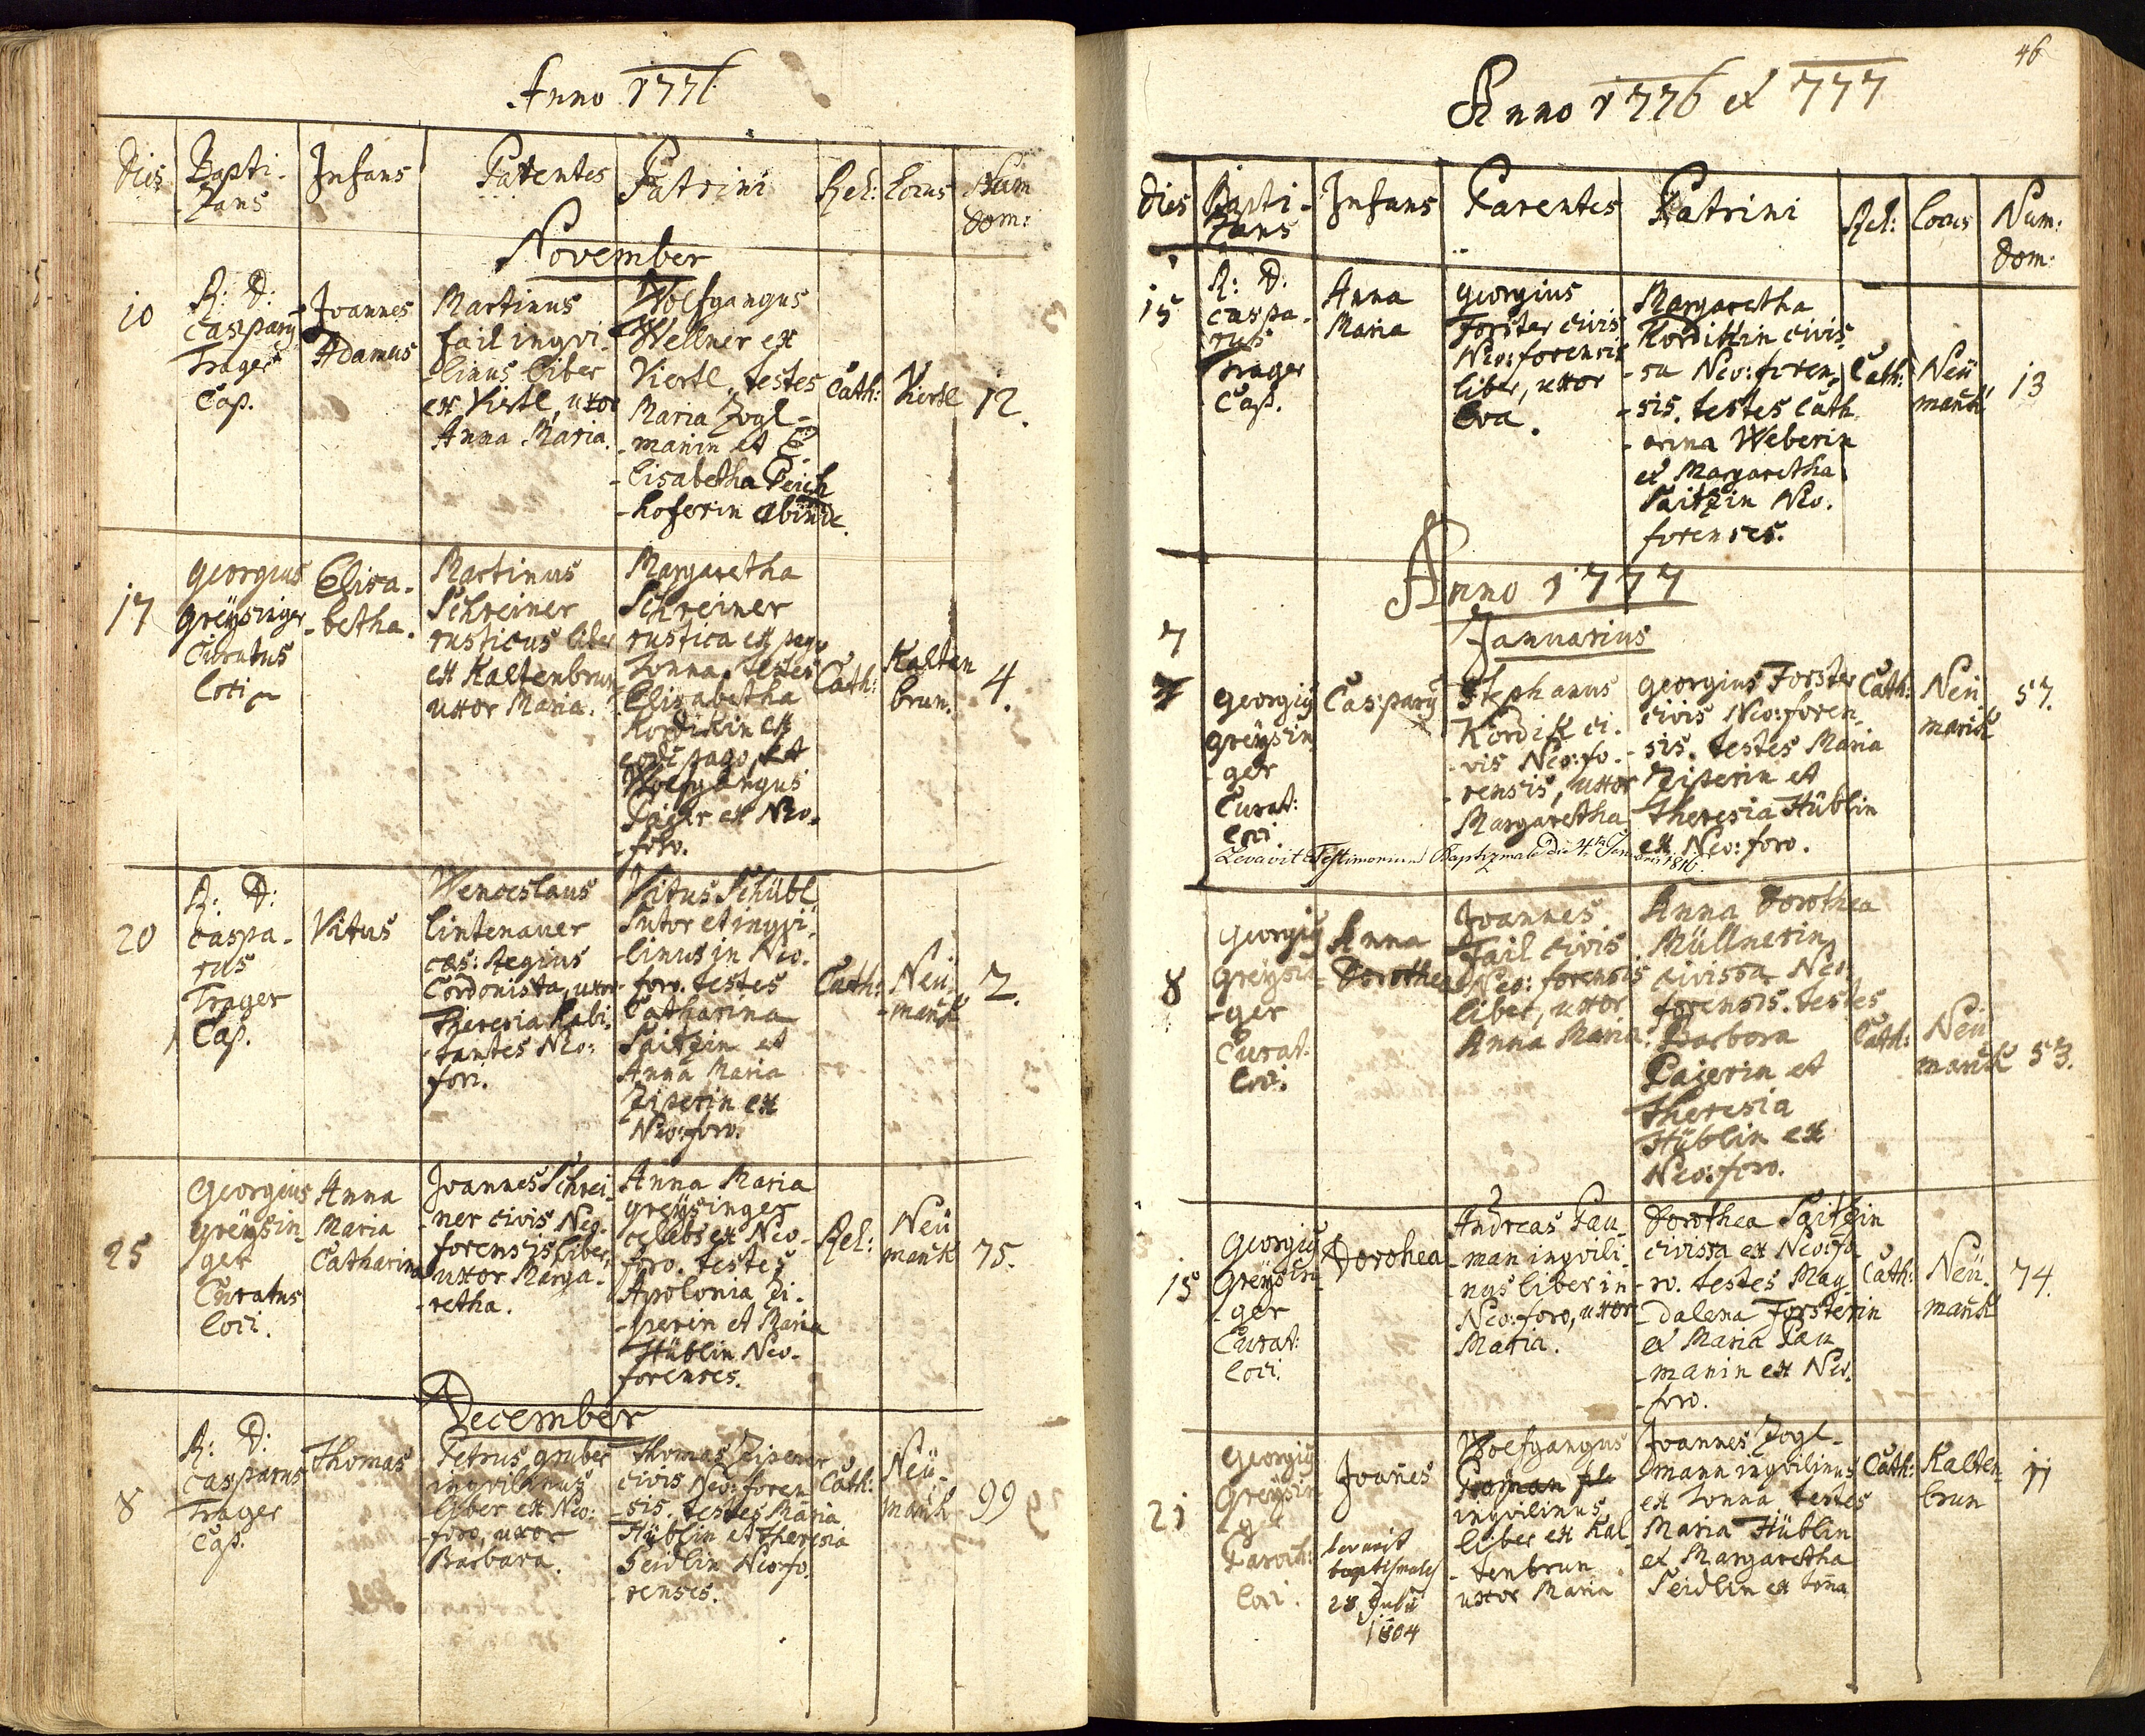 Anno 1776
Dies
Bapti-
zans
Infans
Parentes
Patrini
Rel:
Locus
Num
dom:
November
10
R: D:
Caspary
Trager
Cap.
Joannes
Adamus
Martinus
Fail inqvi-
linus liber
ex Viertl, uxor
Anna Maria.
Wolfgangus
Wellner ex
Viertl, testes
Maria Zogl-
-manin et E-
-lisabetha Peich
-hoferin abinde.
Cath:
Viertl
12.
17
Georgius
Greÿsinger
Curatus
Loci
Elisa-
-betha.
Martinus
Schreiner
rusticus liber
ex Kaltenbrun
uxor Maria.
Margaretha
Schreiner
rustica ex pago
Tonna. Testes
Elisabetha
Kordikin ex
eodē pago, et
Wolfgangus
ex Neo-
-foro.
Cath:
Kalten
brun.
4.
20
R: D:
Caspa-
rus
Trager
Cap.
Vitus
Wenceslaus
Lintenauer
cæs: Regius
Cordonista, uxor
Theresia habi-
-tantes Neo:
fori.
Vitus Schübl
Sutor et inqvi-
-linus in Neo-
-foro. testes
Catharina
Saitzin et
Anna Maria
Ziperin ex
Neo:foro.
Cath:
Neü-
-markt
2.
25
Georgius
Greÿsin-
ger
Curatus
Loci.
Anna
Maria
Catharina
Joannes Schrei-
-ner civis Neo-
forensis liber,
uxor Marga-
-retha.
Anna Maria
Greÿsinger
cælebs ex Neo-
foro. testes
Apolonia Zi-
-perin et Maria
Hüblin Neo-
forenses.
Rel:
Neü
markt
75.
December
8
R: D:
Casparus
Trager
Cap.
Thomas
Petrus Gruber
inqvilinus
liber ex Neo:
-foro, uxor
Barbara.
Thomas Ziperer
civis Neo:foren
-sis. testes Maria
Hüblin et Theresia
Seidlin Neo:fo-
renses.
Cath:
Neü-
markt
99
46
Anno 1776 et 777
Dies
Bapti-
zans
Infans
Parentes
Patrini
Rel:
Locus
Num:
dom:
15
R: D:
Caspa-
rus
Trager
Cap.
Anna
Maria
Georgius
Forster civis
Neo:forensis
liber, uxor
Eva.
Margaretha
Kordikin civis-
-sa Neo:foren-
-sis. testes Cath
-arina Weberin
et Margaretha
Saitzin Neo-
forenses.
Cath:
Neü
markt
13
Anno 1777
Januarius
7
Georgiy
Greÿsin
-ger
Curat:
Loci
Caspary
Stephanus
Kordik ci-
-vis Neo:fo-
-rensis, uxor
Margaretha
Georgius Forster
civis Neo:foren-
-sis. testes Maria
Ziperin et
Theresia Hüblin
ex Neo:foro.
Cath:
Neü
markt
57.
Levavit Testimonium Baptizmale die 4. 1816.
8
Georgiy
Greÿsin-
-ger
Curat.
Loci.
Anna
Dorothea
Joannes
Fail civis
Neo: forensis
liber, uxor
Anna Maria.
Anna Dorothea
Müllnerin
civissa Neo-
forensis. testes
Barbora
Paierin et
Theresia
Hüblin ex
Neo:foro.
Cath:
Neü
markt
53.
15
Georgiy
Greÿsin-
ger
Curat:
Loci.
Dorohea
Andreas Pau-
-man inqvili-
-nus liber in
Neo:foro, uxor
Maria.
Dorothea Saitzin
civissa ex Neo:fo
-ro. testes Mag-
-dalena Forsterin
et Maria Pau
-manin ex Neo-
-foro.
Cath:
Neü-
-markt
74.
21
Georgiy
Greÿsin
-g
Paroch:
Loci.
Joañes
levavit
baptismales
28 Julii
1804
Wolfgangus
inqvilinus
liber ex Kal
-tenbrun
uxor Maria
Joannes Zogl-
-mann inqvilinus
ex Tonna. testes
Maria Hüblin
et Margaretha
Seidlin ex Toñna
Cath:
Kalten
brun
11